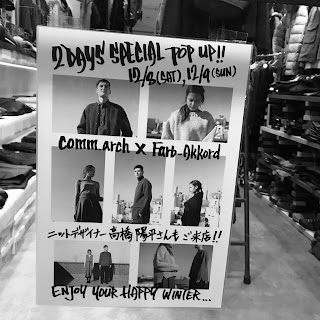 2DAYS SPECIAL POP UP!!
12/8(SAT),12/9(SUN)
comm.arch x Farb-Akkord
ニットデザイナー高橋陽平さんもご来店!!
ENJOY YOUR HAPPY WINTER...